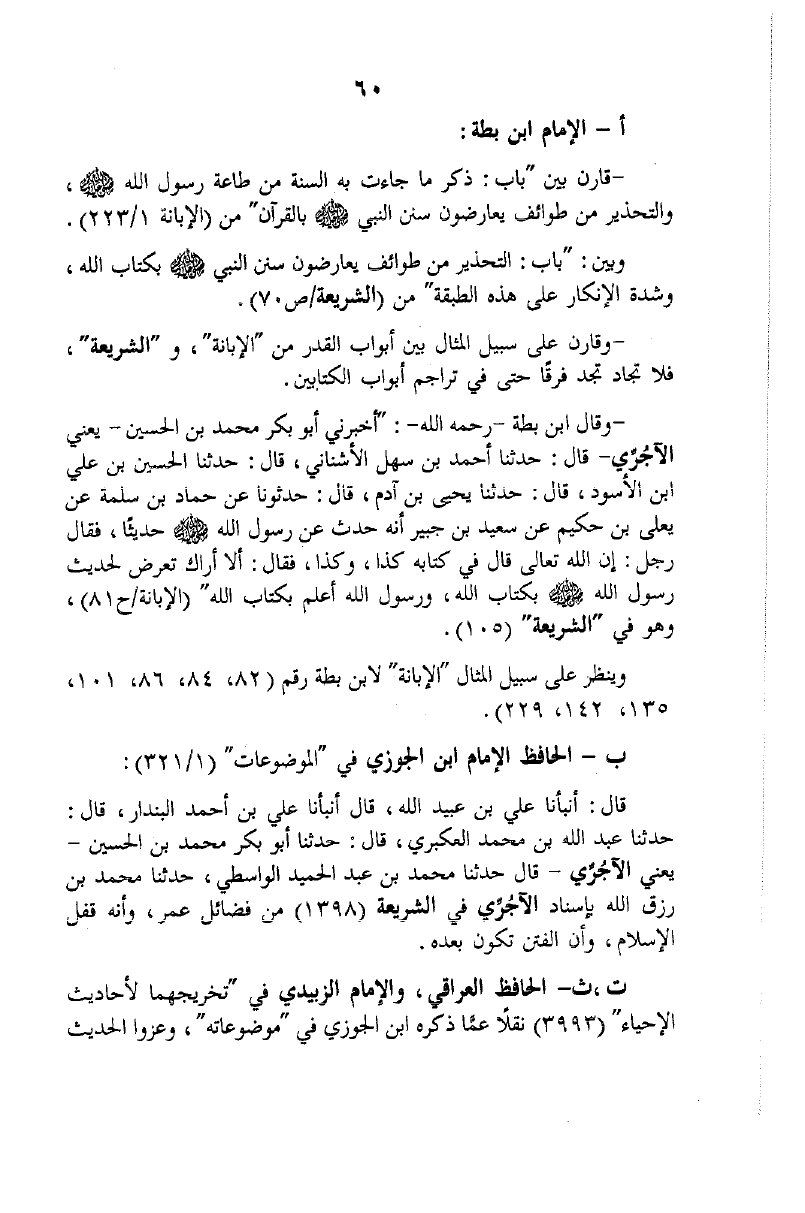 ٦٠
أ - الإمام ابن بطة :
-قارن بين "باب : ذكر ما جاءت به السنة من طاعة رسول الله ﷺ ،
والتحذير من طوائف يعارضون سنن النبي ﷺ بالقرآن" من (الإبانة ٢٢٣/١) .
وبين : "باب : التحذير من طوائف يعارضون سنن النبي ﷺ بكتاب الله ،
وشدة الإنكار على هذه الطبقة" من (الشريعة/ص٧٠) .
-وقارن على سبيل المثال بين أبواب القدر من "الإبانة" ، و "الشريعة" ،
فلا تجاد تجد فرقًا حتى في تراجم أبواب الكتابين .
-وقال ابن بطة -رحمه الله- : "أخبرني أبو بكر محمد بن الحسين - يعني
الآجُرِّي- قال : حدثنا أحمد بن سهل الأشناني ، قال : حدثنا الحسين بن علي
ابن الأسود ، قال : حدثنا يحيى بن آدم ، قال : حدثونا عن حماد بن سلمة عن
يعلى بن حكيم عن سعيد بن جبير أنه حدث عن رسول الله ﷺ حديثًا ، فقال
رجل : إن الله تعالى قال في كتابه كذا ، وكذا ، فقال : ألا أراك تعرض لحديث
رسول الله ﷺ بكتاب الله ، ورسول الله أعلم بكتاب الله" (الإبانة/ح٨١) ،
وهو في "الشريعة" (١٠٥) .
وينظر على سبيل المثال "الإبانة" لابن بطة رقم (٨٢، ٨٤، ٨٦، ١٠١،
١٣٥، ١٤٢، ٢٢٩) .
ب - الحافظ الإمام ابن الجوزي في "الموضوعات" (٣٢١/١) :
قال : أنبأنا علي بن عبيد الله ، قال أنبأنا علي بن أحمد البندار ، قال :
حدثنا عبد الله بن محمد العكبري ، قال : حدثنا أبو بكر محمد بن الحسين -
يعني الآجُرِّي - قال حدثنا محمد بن عبد الحميد الواسطي ، حدثنا محمد بن
رزق الله بإسناد الآجُرِّي في الشريعة (١٣٩٨) من فضائل عمر ، وأنه قفل
الإسلام ، وأن الفتن تكون بعده .
ت ،ث- الحافظ العراقي ، والإمام الزبيدي في "تخريجهما لأحاديث
الإحياء" (٣٩٩٣) نقلًا عمَّا ذكره ابن الجوزي في "موضوعاته" ، وعزوا الحديث